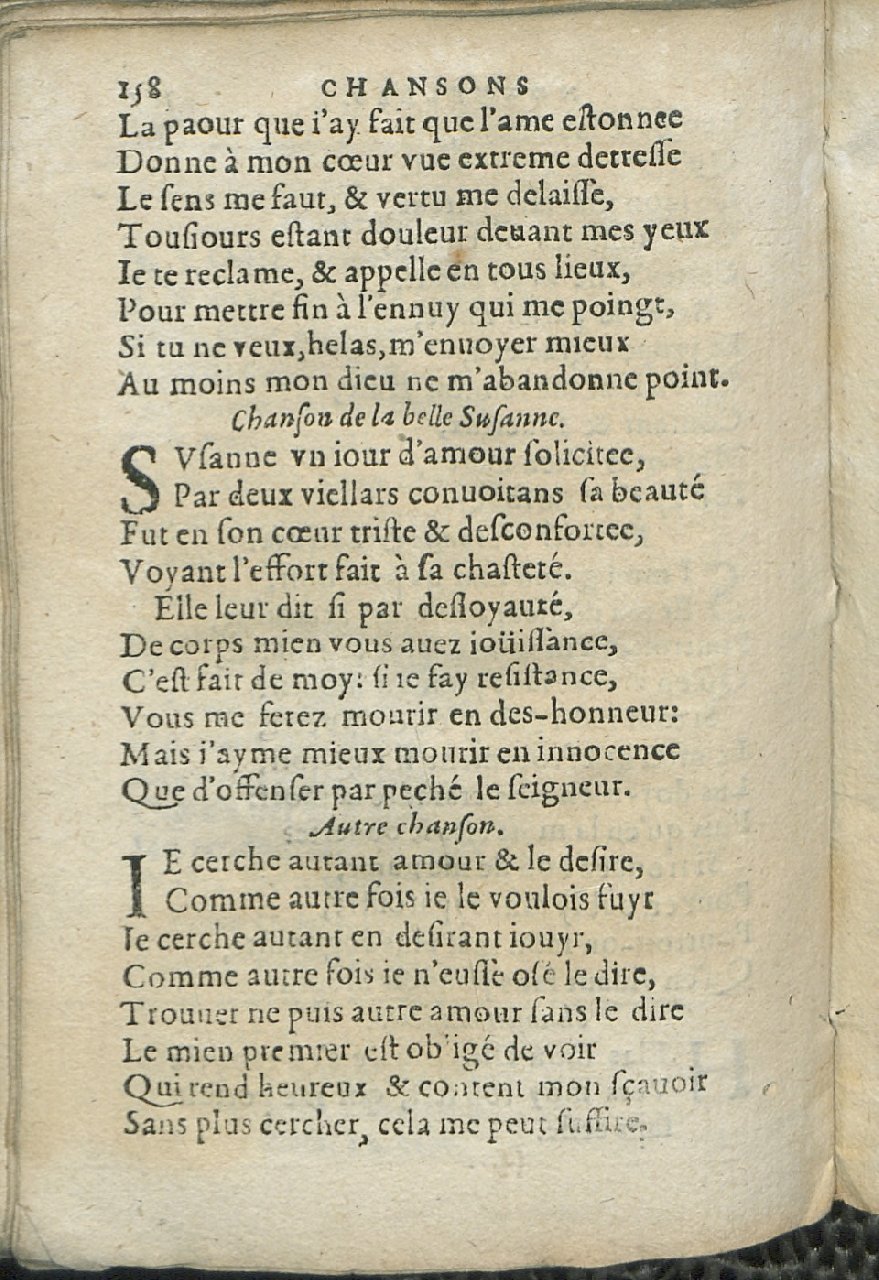 158 CHANSONS
La paour que i'ay fait que l'ame eſtonnee
Donne à mon cœur vue extreme detreſſe
Le ſens me faut, & vertu me delaiſſe,
Touſiours eſtant douleur deuant mes yeux
Ie te reclame, & appelle en tous lieux,
Pour mettre fin à l'ennuy qui me poingt,
Si tu ne veux, helas, m'enuoyer mieux
Au moins mon dieu ne m'abandonne point.
Chanſon de la belle Suſanne.
SVſanne vn iour d'amour ſolicitee,
Par deux viellars conuoitans ſa beauté
Fut en ſon cœur triſte & deſconfortee,
Voyant l'effort fait à ſa chaſteté.
Elle leur dit ſi par deſloyauté,
De corps mien vous auez ioüiſſance,
C'eſt fait de moy: ſi ie fay reſiſtance,
Vous me ferez mourir en des-honneur:
Mais i'ayme mieux mourir en innocence
Que d'offenſer par peché le ſeigneur.
Autre chanſon.
IE cerche autant amour & le deſire,
Comme autre fois ie le voulois fuyr
Ie cerche autant en deſirant iouyr,
Comme autre fois ie n'euſſe oſé le dire,
Trouuer ne puis autre amour ſans le dire
Le mien premier eſt ob'igé de voir
Qui rend heureux & content mon ſçauoir
Sans plus cercher, cela me peut ſuffire.